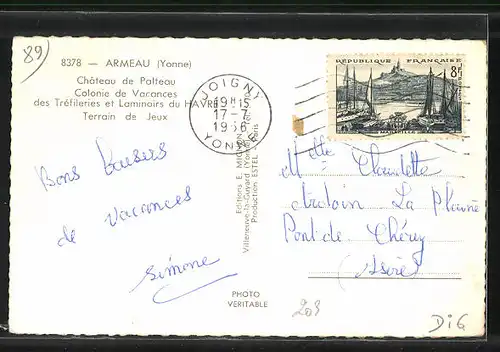 89
8378 — ARMEAU (Yonne)
Château de Palteau
Colonie de Vacances
des Tréfileries et Laminoirs du HAVRE
Terrain de Jeux
JOIGNY
19H15
17-7
1956
YONNE
RÉPUBLIQUE FRANÇAISE
8F
MARSEILLE
Bons baisers
de vacances
Simone
Editions E. MIGNON
Villeneuve-la-Guyard (Yonne)
Production ESTEL - Paris
Melle Claudette
La Plaine
Pont de Chéruy
(Isère)
PHOTO
VERITABLE
203
DiG